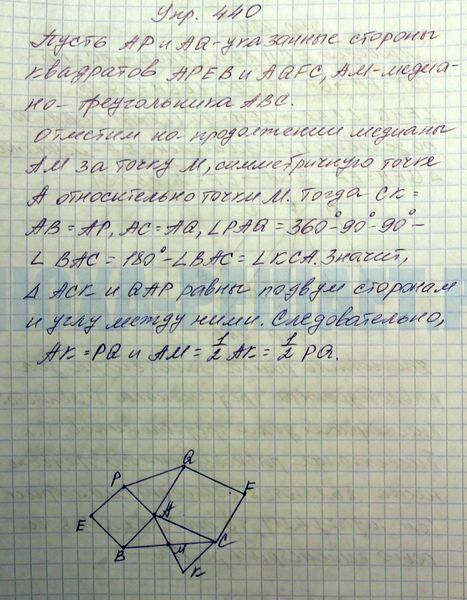 Упр. 440
Пусть AP и AQ-указанные стороны
квадратов APEB и AQFC, AM-медиа-
на- треугольника ABC.
Отметим на продолжении медианы
AM за точку M, симметричную точке
A относительно точки M. Тогда CK =
AB = AP, AC = AQ, ∠PAQ = 360°-90°-90°-
∠ BAC = 180°-∠BAC = ∠KCA. Значит,
Δ ACK и QAP равны по двум сторонам
и углу между ними. Следовательно,
AK = PQ и AM = 1/2 AK = 1/2 PQ.
Q
P
F
A
E
B
M
C
K